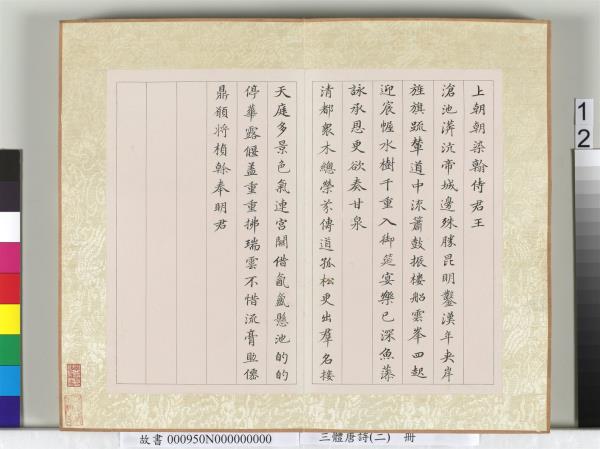 上朝朝染翰侍君王
滄池漭沆帝城邊殊勝昆明鑿漢年夾岸
旌旗疏輦道中流簫鼓振樓船雲峯四起
迎宸幄水樹千重入御筵宴樂已深魚藻
詠承恩更欲奏甘泉
清都衆木總榮芬傳道孤松更出羣名接
天庭多景色氣連宮闕借氤氳懸池的的
停華露偃盖重重拂瑞雲不惜流膏助僊
鼎願將楨幹奉明君
故書 000950N000000000 三體唐詩(二) 冊
1
2